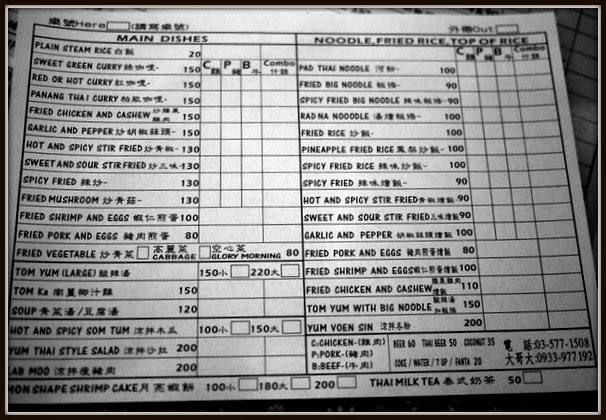 桌號Here (請寫桌號) 外帶Out
MAIN DISHES
PLAIN STEAM RICE 白飯 20
C P B Combo
雞 豬 牛 什錦
SWEET GREEN CURRY 綠咖哩- 150
RED OR HOT CURRY 紅咖哩- 150
PANANG THAI CURRY 咖哩- 150
FRIED CHICKEN AND CASHEW 150
GARLIC AND PEPPER 炒胡椒蒜頭- 150
HOT AND SPICY STIR FRIED 炒青椒- 130
SWEET AND SOUR STIR FRIED 炒三味- 130
SPICY FRIED 辣炒- 130
FRIED MUSHROOM 炒青菇- 130
FRIED SHRIMP AND EGGS 蝦仁煎蛋 100
FRIED PORK AND EGGS 豬肉煎蛋 80
FRIED VEGETABLE 炒青菜 高麗菜 CABBAGE 空心菜 GLORY MORNING 80
TOM YUM (LARGE) 酸辣湯 150小 220大
TOM Ka 南薑椰汁雞 150
SOUP 青菜湯/豆腐湯 120
HOT AND SPICY SOM TUM 涼拌木瓜 100小 150大
YUM THAI STYLE SALAD 涼拌沙拉 200
LAB MOO 涼拌瘦豬肉 200
MON SHAPE SHRIMP CAKE 月亮蝦餅 100小 180大 200
NOODLE, FRIED RICE, TOP OF RICE
C P B Combo
雞 豬 牛 什錦
PAD THAI NOODLE 河粉- 100
FRIED BIG NOODLE 粄條- 90
SPICY FRIED BIG NOODLE 辣味粄條- 90
RAD NA NOOODLE 湯燴粄條- 100
FRIED RICE 炒飯- 100
PINEAPPLE FRIED RICE 鳳梨炒飯- 100
SPICY FRIED RICE 辣味炒飯- 100
SPICY FRIED 辣味燴飯- 90
HOT AND SPICY STIR FRIED 青椒燴飯- 90
SWEET AND SOUR STIR FRIED 三味燴飯 90
GARLIC AND PEPPER 胡椒蒜頭燴飯 100
FRIED PORK AND EGGS 豬肉煎蛋燴飯 80
FRIED SHRIMP AND EGGS 蝦仁煎蛋燴飯 100
FRIED CHICKEN AND CASHEW 110
TOM YUM WITH BIG NOODLE 酸辣湯加粄條 150
YUM VOEN SIN 涼拌冬粉 200
C:CHICKEN-(雞肉)
P:PORK-(豬肉)
B:BEEF-(牛肉)
BEER 60 THAI BEER 50 COCONUT 35
COKE / WATER / 7 UP / FANTA 20
電 話:03-577-1508
大哥大:0933-977192
THAI MILK TEA 泰式奶茶 50